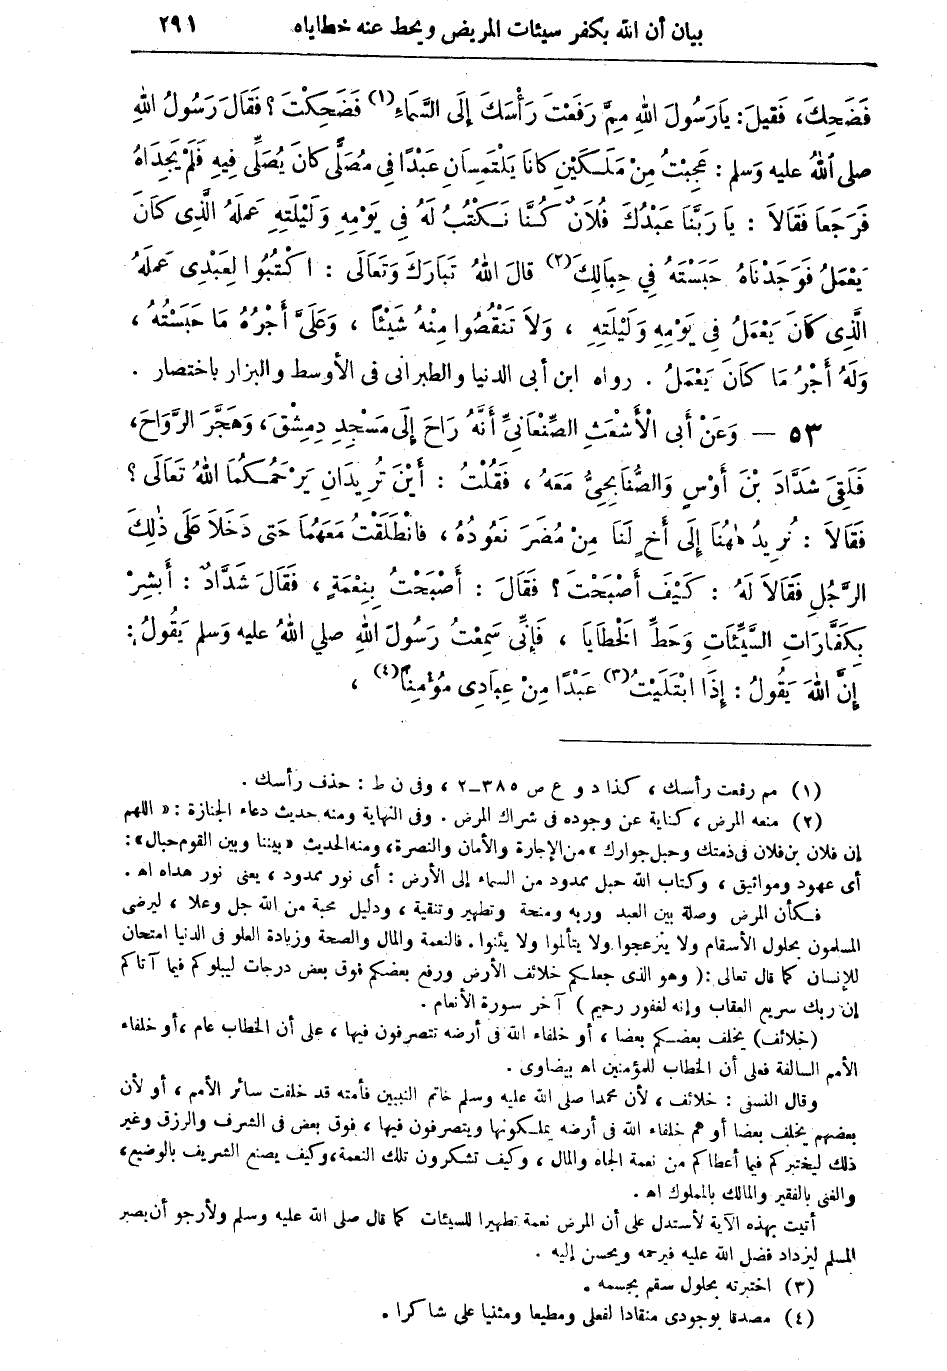 بيان أن الله يكفر سيئات المريض ويحط عنه خطاياه ٢٩١
فَضَحِكَ، فَقِيلَ: يَارَسُولَ اللهِ مِمَّ رَفَعْتَ رَأْسَكَ إِلَى السَّمَاءِ (١) فَضَحِكْتَ؟ فَقَالَ رَسُولُ اللهِ
صلى اللهُ عليه وَسلم : عَجِبْتُ مِنْ مَلَكَيْنِ كانَا يَلْتَمِسَانِ عَبْدًا فى مُصَلًّى كانَ يُصَلِّى فِيهِ فَلَمْ يَجِدَاهُ
فَرَجَعَا فَقَالَا : يَا رَبَّنَا عَبْدُكَ فُلَانٌ كُنَّا نَكْتُبُ لَهُ فِى يَوْمِهِ وَلَيْلَتِهِ عَمَلَهُ الَّذِى كَانَ
يَعْمَلُ فَوَجَدْنَاهُ حَبَسْتَهُ فِي حِبَالِكَ (٢) قالَ اللهُ تَبَارَكَ وَتَعَالَى : اكْتُبُوا لِعَبْدِى عَمَلَهُ
الَّذِى كَانَ يَعْمَلُ فِى يَوْمِهِ وَلَيْلَتِهِ ، وَلَا تَنْقُصُوا مِنْهُ شَيْئًا ، وَعَلَىَّ أَجْرُهُ مَا حَبَسْتُهُ ،
وَلَهُ أَجْرُ مَا كَانَ يَعْمَلُ . رواه ابن أبى الدنيا والطبرانى فى الأوسط والبزار باختصار .
٥٣ — وَعَنْ أَبى الْأَشْعَثِ الصَّنْعَانِىِّ أَنَّهُ رَاحَ إِلَى مَسْجِدِ دِمِشْقَ، وَهَجَّرَ الرَّوَاحَ،
فَلَقِىَ شَدَّادَ بْنَ أَوْسٍ وَالصُّنَابِحِىُّ مَعَهُ ، فَقُلْتُ : أَيْنَ تُرِيدَانِ يَرْحَمُكُمَا اللهُ تَعَالَى ؟
فَقَالَا : نُرِيدُ هٰهُنَا إِلَى أَخٍ لَنَا مِنْ مُضَرَ نَعُودُهُ ، فَانْطَلَقْتُ مَعَهُمَا حَتى دَخَلَا عَلَى ذٰلِكَ
الرَّجُلِ فَقَالَا لَهُ : كَيْفَ أَصْبَحْتَ ؟ فَقَالَ : أَصْبَحْتُ بِنِعْمَةٍ ، فَقَالَ شَدَّادٌ : أَبْشِرْ
بِكَفَّارَاتِ السَّيِّئَاتِ وَحَطِّ الْخَطَايَا ، فَإِنِّى سَمِعْتُ رَسُولَ اللهِ صلى اللهُ عليه وَسلم يَقُولُ :
إِنَّ اللهَ يَقُولُ : إِذَا ابْتَلَيْتُ (٣) عَبْدًا مِنْ عِبَادِى مُؤْمِنًا (٤) ،
(١) مم رفعت رأسك ، كذا د و ع ص ٣٨٥ـ٢ ، وفى ن ط : حذف رأسك .
(٢) منعه المرض ، كناية عن وجوده فى شراك المرض . وفى النهاية ومنه حديث دعاء الجنازة : « اللهم
إن فلان بن فلان فى ذمتك وحبل جوارك » من الإجارة والأمان والنصرة، ومنه الحديث « بيننا وبين القوم حبال» :
أى عهود ومواثيق ، وكتاب الله حبل ممدود من السماء إلى الأرض : أى نور ممدود ، يعنى نور هداه اه .
فكأن المرض وصلة بين العبد وربه ومنحة وتطهير وتنقية ، ودليل محبة من الله جل وعلا ، ليرضى
المسلمون بحلول الأسقام ولا ينزعجوا ولا يتألموا ولا يئنوا . فالنعمة والمال والصحة وزيادة العلو فى الدنيا امتحان
للإنسان كما قال تعالى : ( وهو الذى جعلكم خلائف الأرض ورفع بعضكم فوق بعض درجات ليبلوكم فيما آتاكم
إن ربك سريع العقاب وإنه لغفور رحيم ) آخر سورة الأنعام .
(خلائف) يخلف بعضكم بعضا ، أو خلفاء الله فى أرضه تتصرفون فيها ، على أن الخطاب عام ، أو خلفاء
الأمم السالفة فعلى أن الخطاب للمؤمنين اه بيضاوى .
وقال النسفى : خلائف ، لأن محمدا صلى الله عليه وسلم خاتم النبيين فأمته قد خلفت سائر الأمم ، أو لأن
بعضهم يخلف بعضا أو هم خلفاء الله فى أرضه يملكونها ويتصرفون فيها ، فوق بعض فى الشرف والرزق وغير
ذلك ليختبركم فيما أعطاكم من نعمة الجاه والمال ، وكيف تشكرون تلك النعمة ، وكيف يصنع الشريف بالوضيع،
والغنى بالفقير والمالك بالمملوك اه .
أتيت بهذه الآية لأستدل على أن المرض نعمة تطهيرا للسيئات كما قال صلى الله عليه وسلم ولأرجو أن يصبر
المسلم ليزداد فضل الله عليه فيرحمه ويحسن إليه .
(٣) اختبرته بحلول سقم بجسمه .
(٤) مصدقا بوجودى منقادا لفعلى ومطيعا ومثنيا على شاكرا .